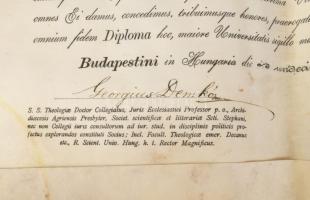 omnes Ei damus, concedimus, tribuimusque honores, praerogati
omnium fidem Diploma hoc, maiore Universitatis sigillo m
Budapestini in Hungaria die
Georgius Demkó
S. S. Theologiae Doctor Collegiatus, Juris Ecclesiastici Professor p. o., Archi-
diaecesis Agriensis Presbyter, Societ. scientificae et litterariae Scti. Stephani,
nec non Collegii iura consultorum ad iur. stud. in disciplinis politicis pro-
vectus explorandos constituti Socius; Incl. Facult. Theologicae emer. Decanus
etc., R. Scient. Univ. Hung. h. t. Rector Magnificus.